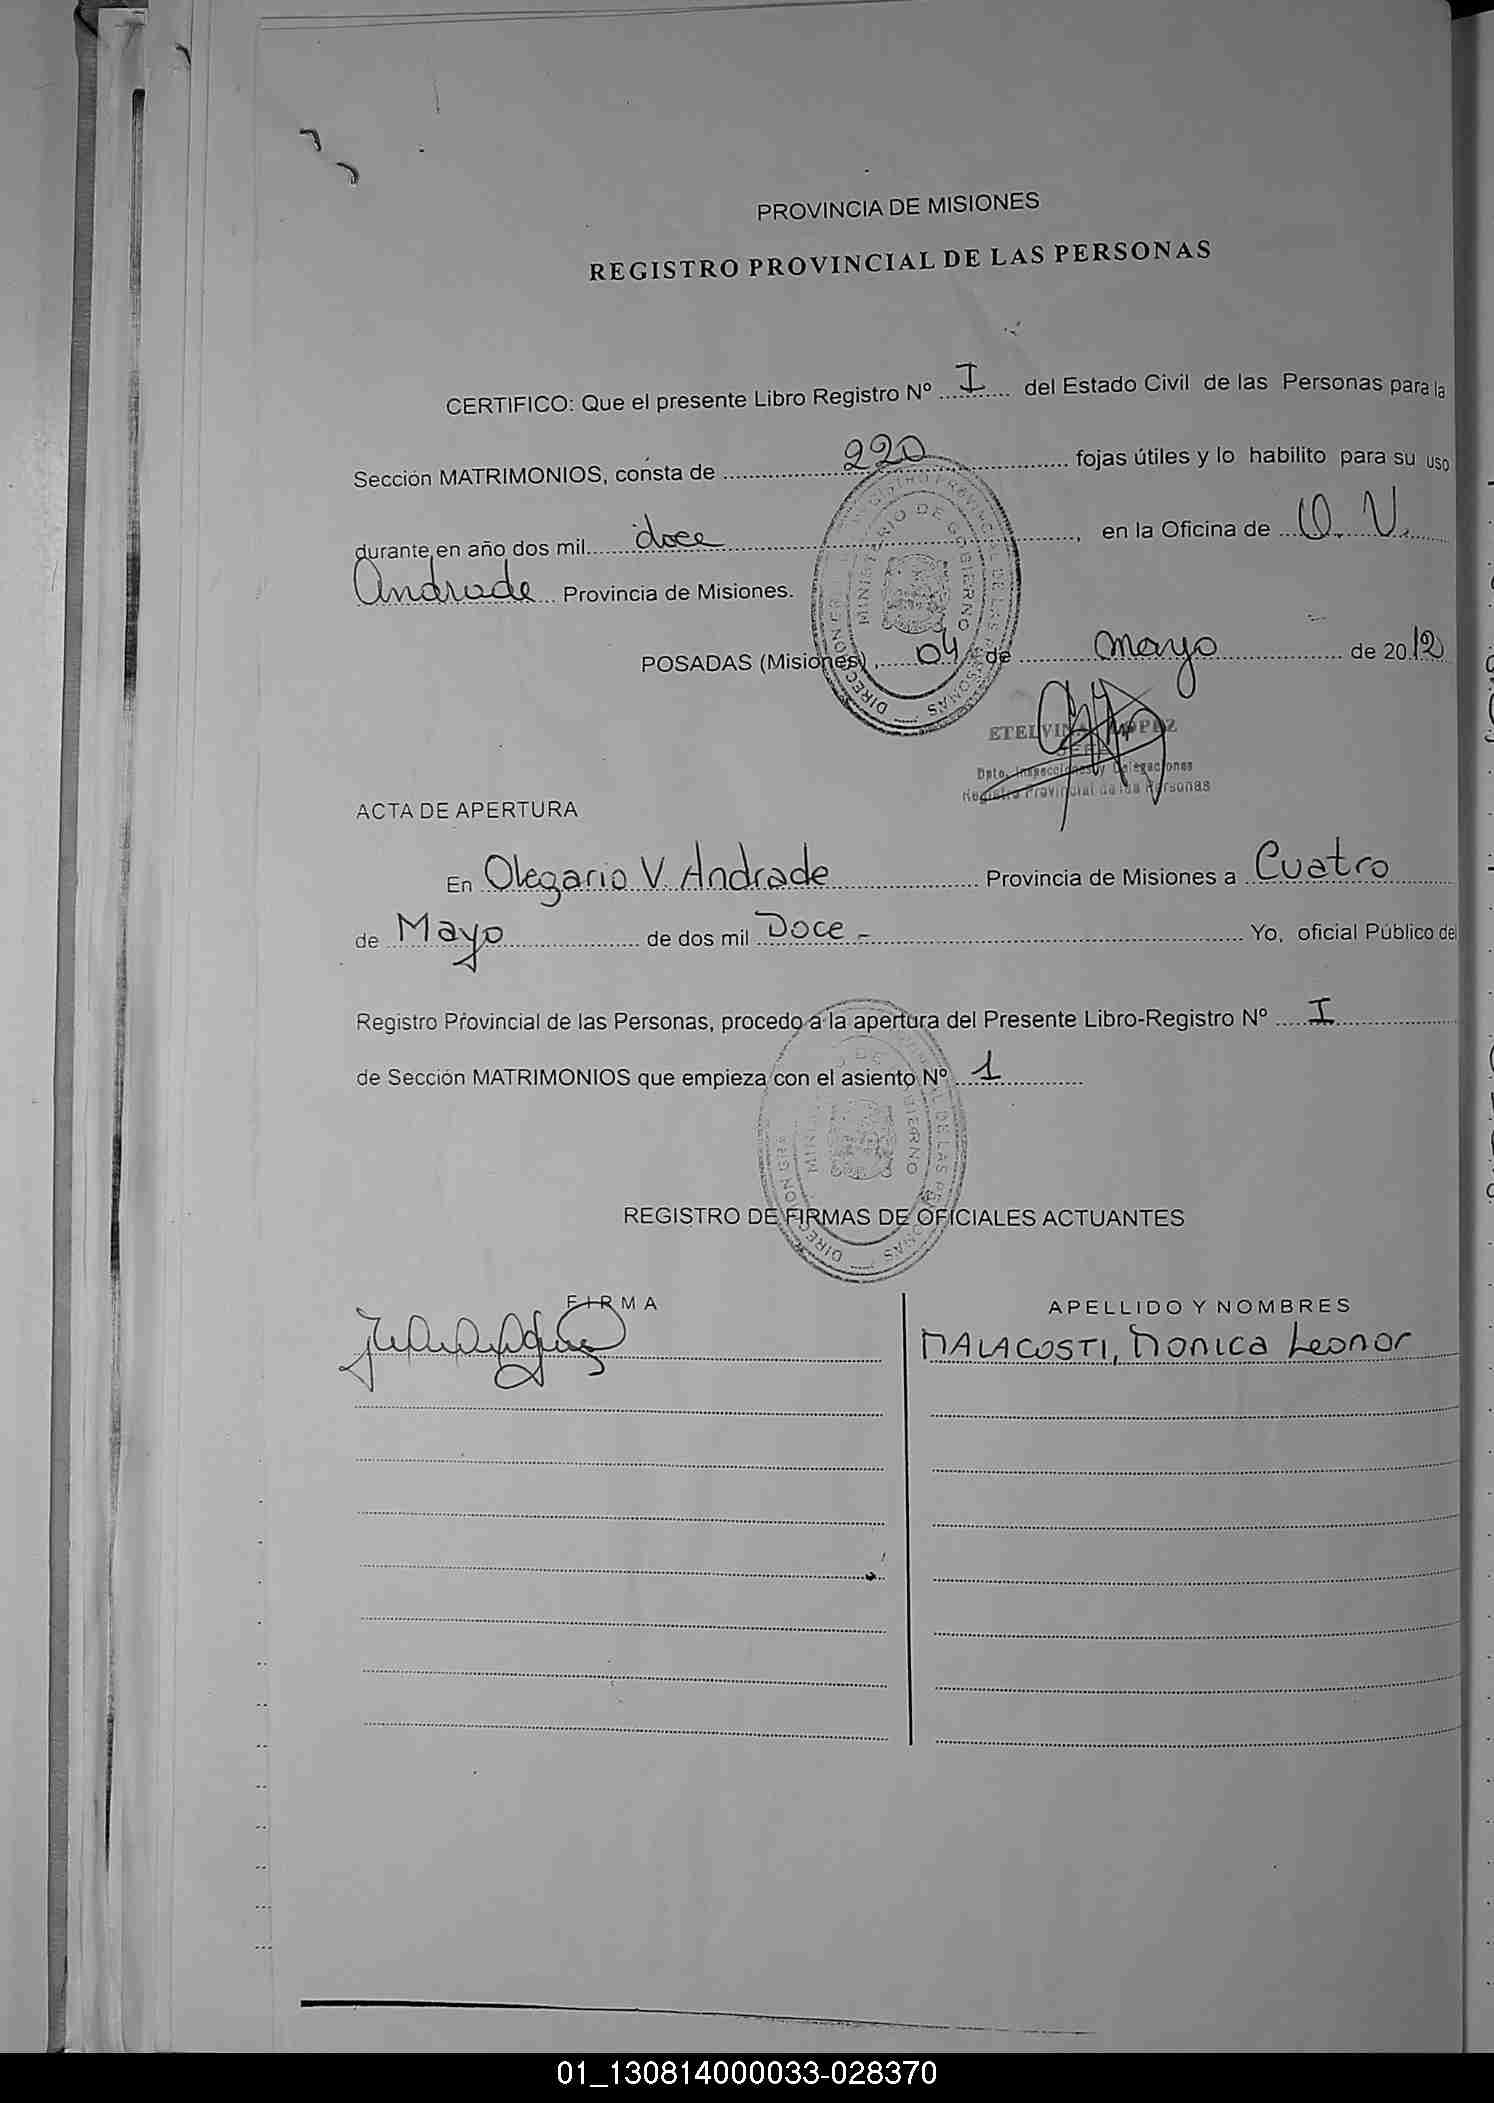 PROVINCIA DE MISIONES
REGISTRO PROVINCIAL DE LAS PERSONAS
CERTIFICO: Que el presente Libro Registro Nº I del Estado Civil de las Personas para la
Sección MATRIMONIOS, consta de 220 fojas útiles y lo habilito para su uso
durante en año dos mil doce, en la Oficina de O. V.
Andrade Provincia de Misiones.
POSADAS (Misiones), 04 de mayo de 2012
ETELVINA LOPEZ
JEFE
Dpto. Inspecciones y Delegaciones
Registro Provincial de las Personas
ACTA DE APERTURA
En Olegario V. Andrade Provincia de Misiones a Cuatro
de Mayo de dos mil Doce - Yo, oficial Público del
Registro Provincial de las Personas, procedo a la apertura del Presente Libro-Registro Nº I
de Sección MATRIMONIOS que empieza con el asiento Nº 1
MINISTERIO DE GOBIERNO
REGISTRO DE FIRMAS DE OFICIALES ACTUANTES
FIRMA APELLIDO Y NOMBRES
MALACOSTI, Monica Leonor
01_130814000033-028370